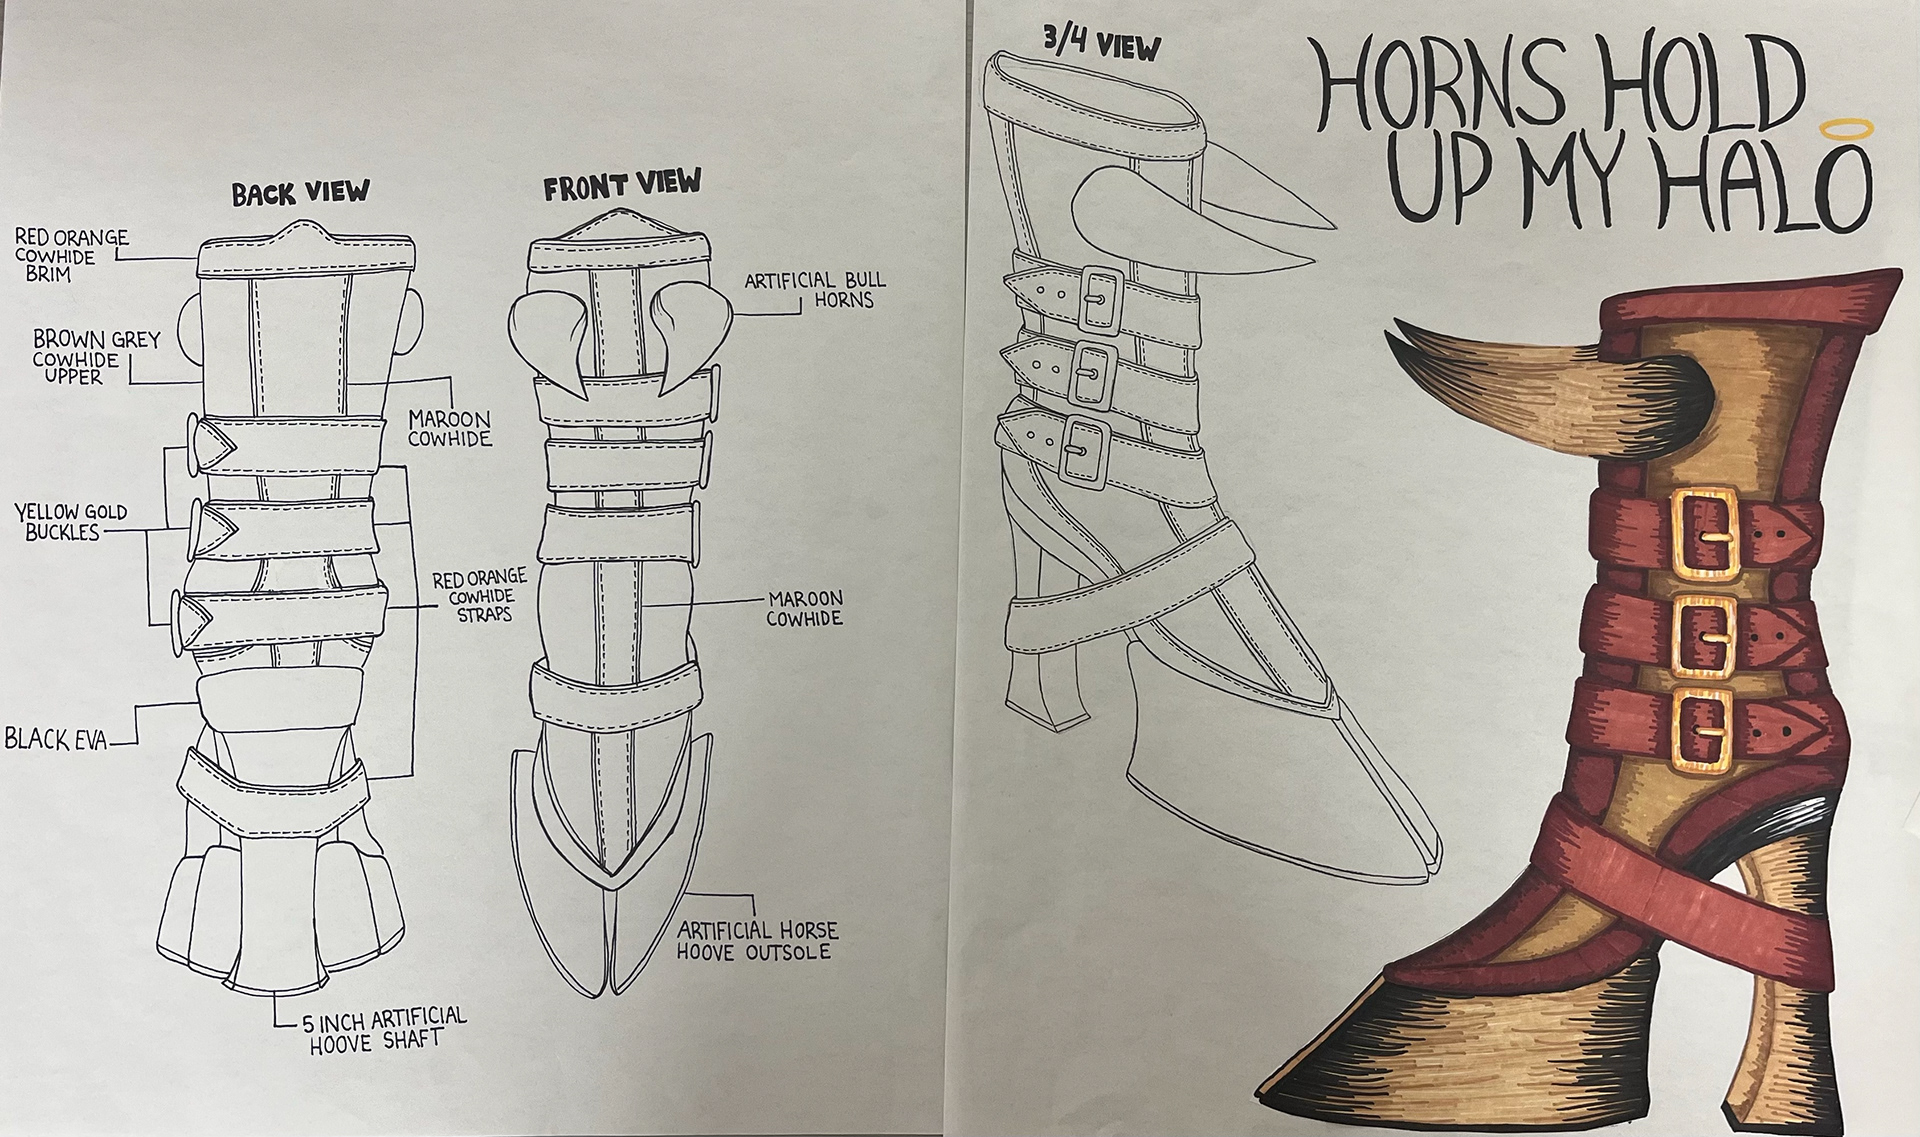 BACK VIEW
RED ORANGE
COWHIDE
BRIM
BROWN GREY
COWHIDE
UPPER
MAROON
COWHIDE
YELLOW GOLD
BUCKLES
RED ORANGE
COWHIDE
STRAPS
BLACK EVA
5 INCH ARTIFICIAL
HOOVE SHAFT
FRONT VIEW
ARTIFICIAL BULL
HORNS
MAROON
COWHIDE
ARTIFICIAL HORSE
HOOVE OUTSOLE
3/4 VIEW
HORNS HOLD
UP MY HALO